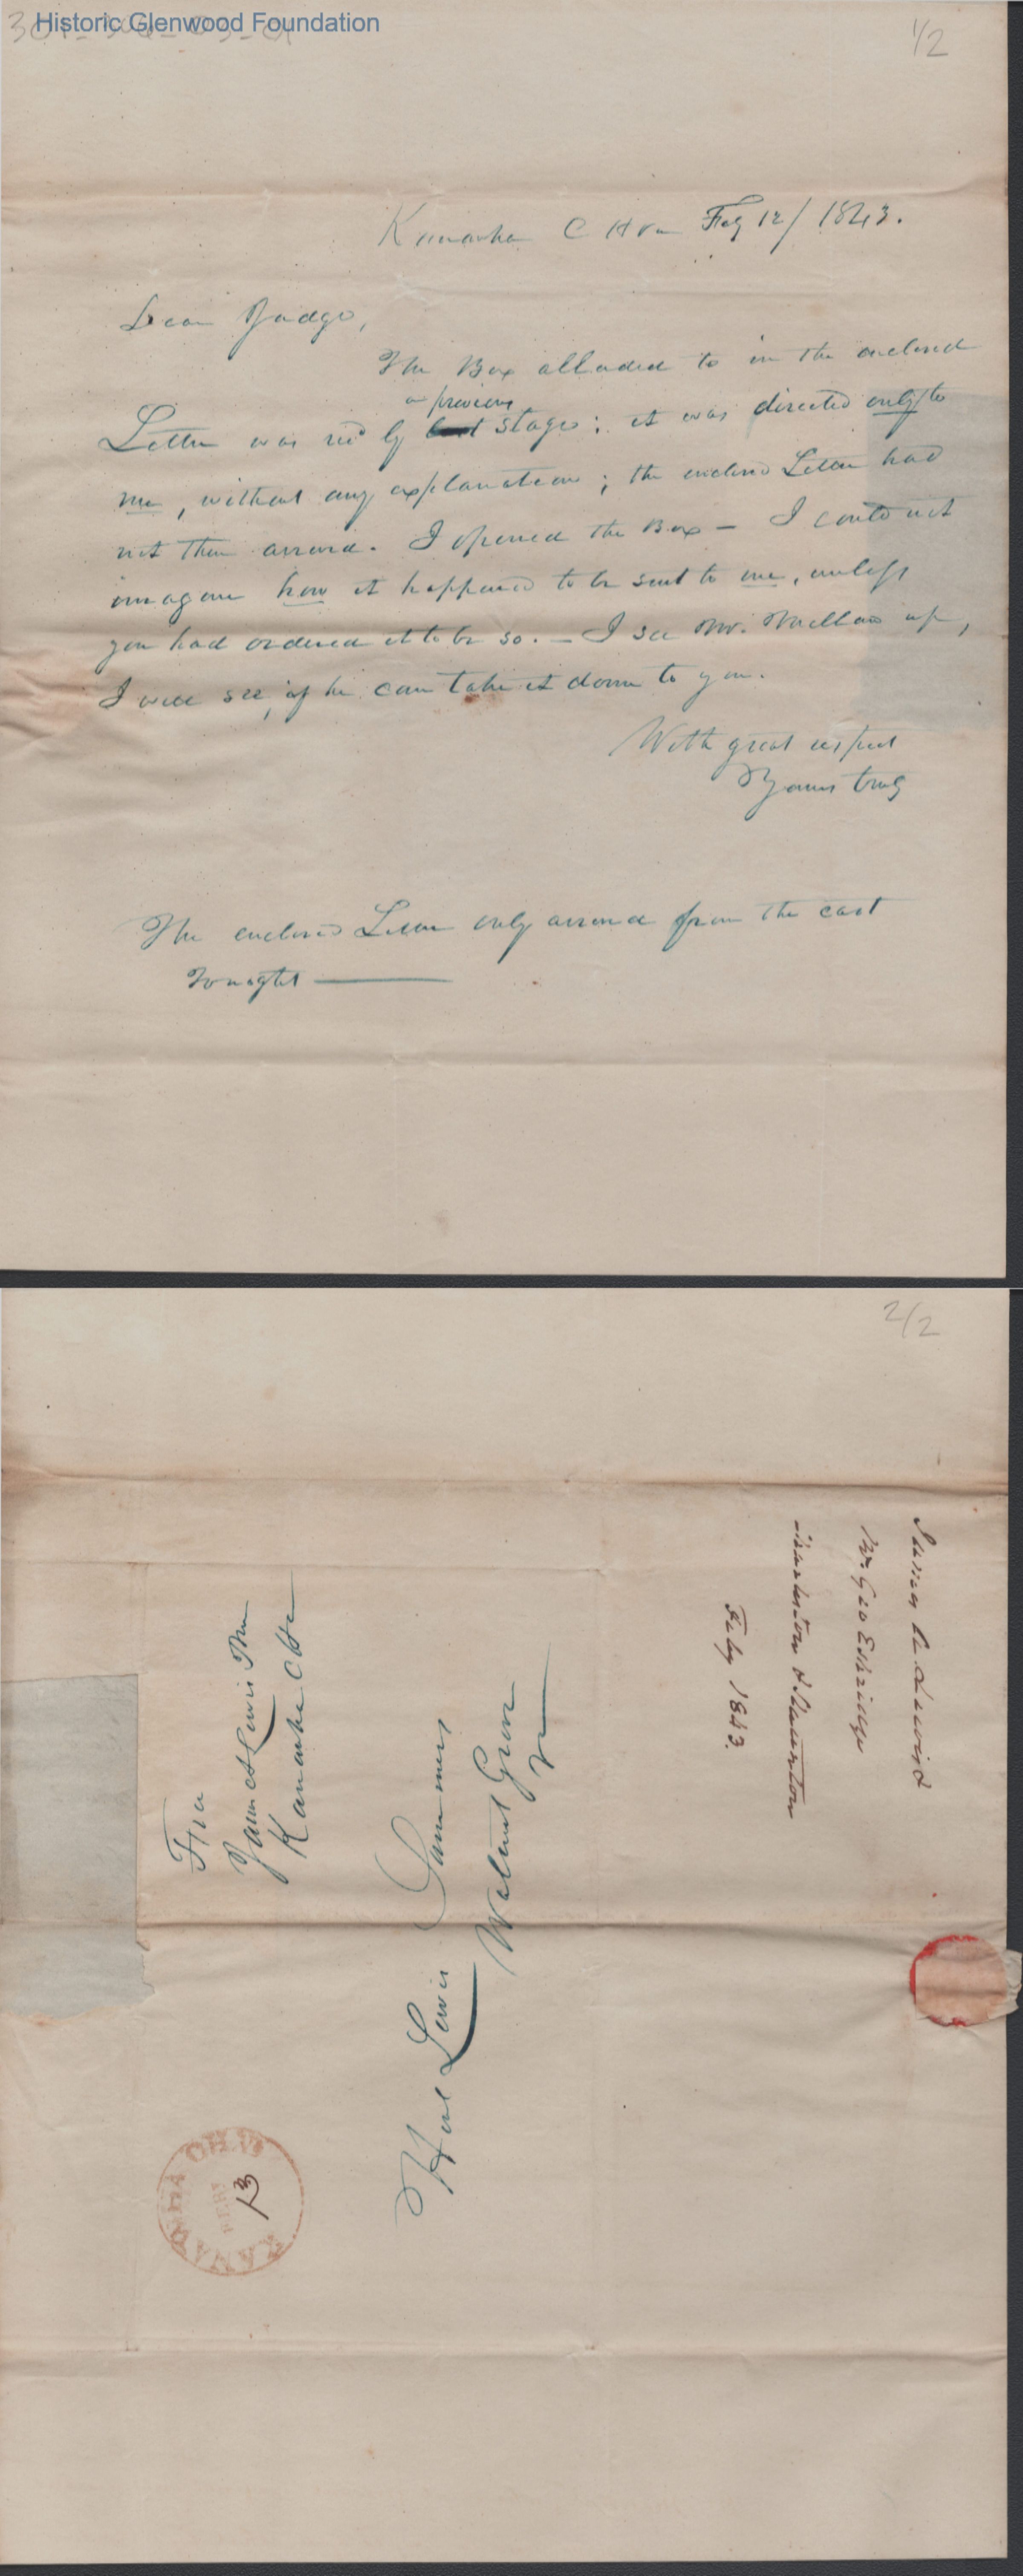 Historic Glenwood Foundation
1/2
Kanawha C H Va Feby 12/ 1843.
Dear Judge,
The Box alluded to in the enclosed
a previous
Letter was recd by stage; it was directed only to
me, without any explanation; the enclosed Letter had
not then arrived. I opened the Box – I could not
imagine how it happened to be sent to me, unless
you had ordered it to be so. – I see Mr. up,
I will see, if he can take it down to you.
With great respect
Yours truly
The enclosed Letter only arrived from the east
Tonight
2/2
James A Lewis
Mr Geo Eskridge
Charleston & Staunton
Feby 1843.
Free
James A Lewis PM
Kanawha CHo
Hon Lewis Summers
Walnut Grove
Va
KANAWHA C.H. Va
FEB
13